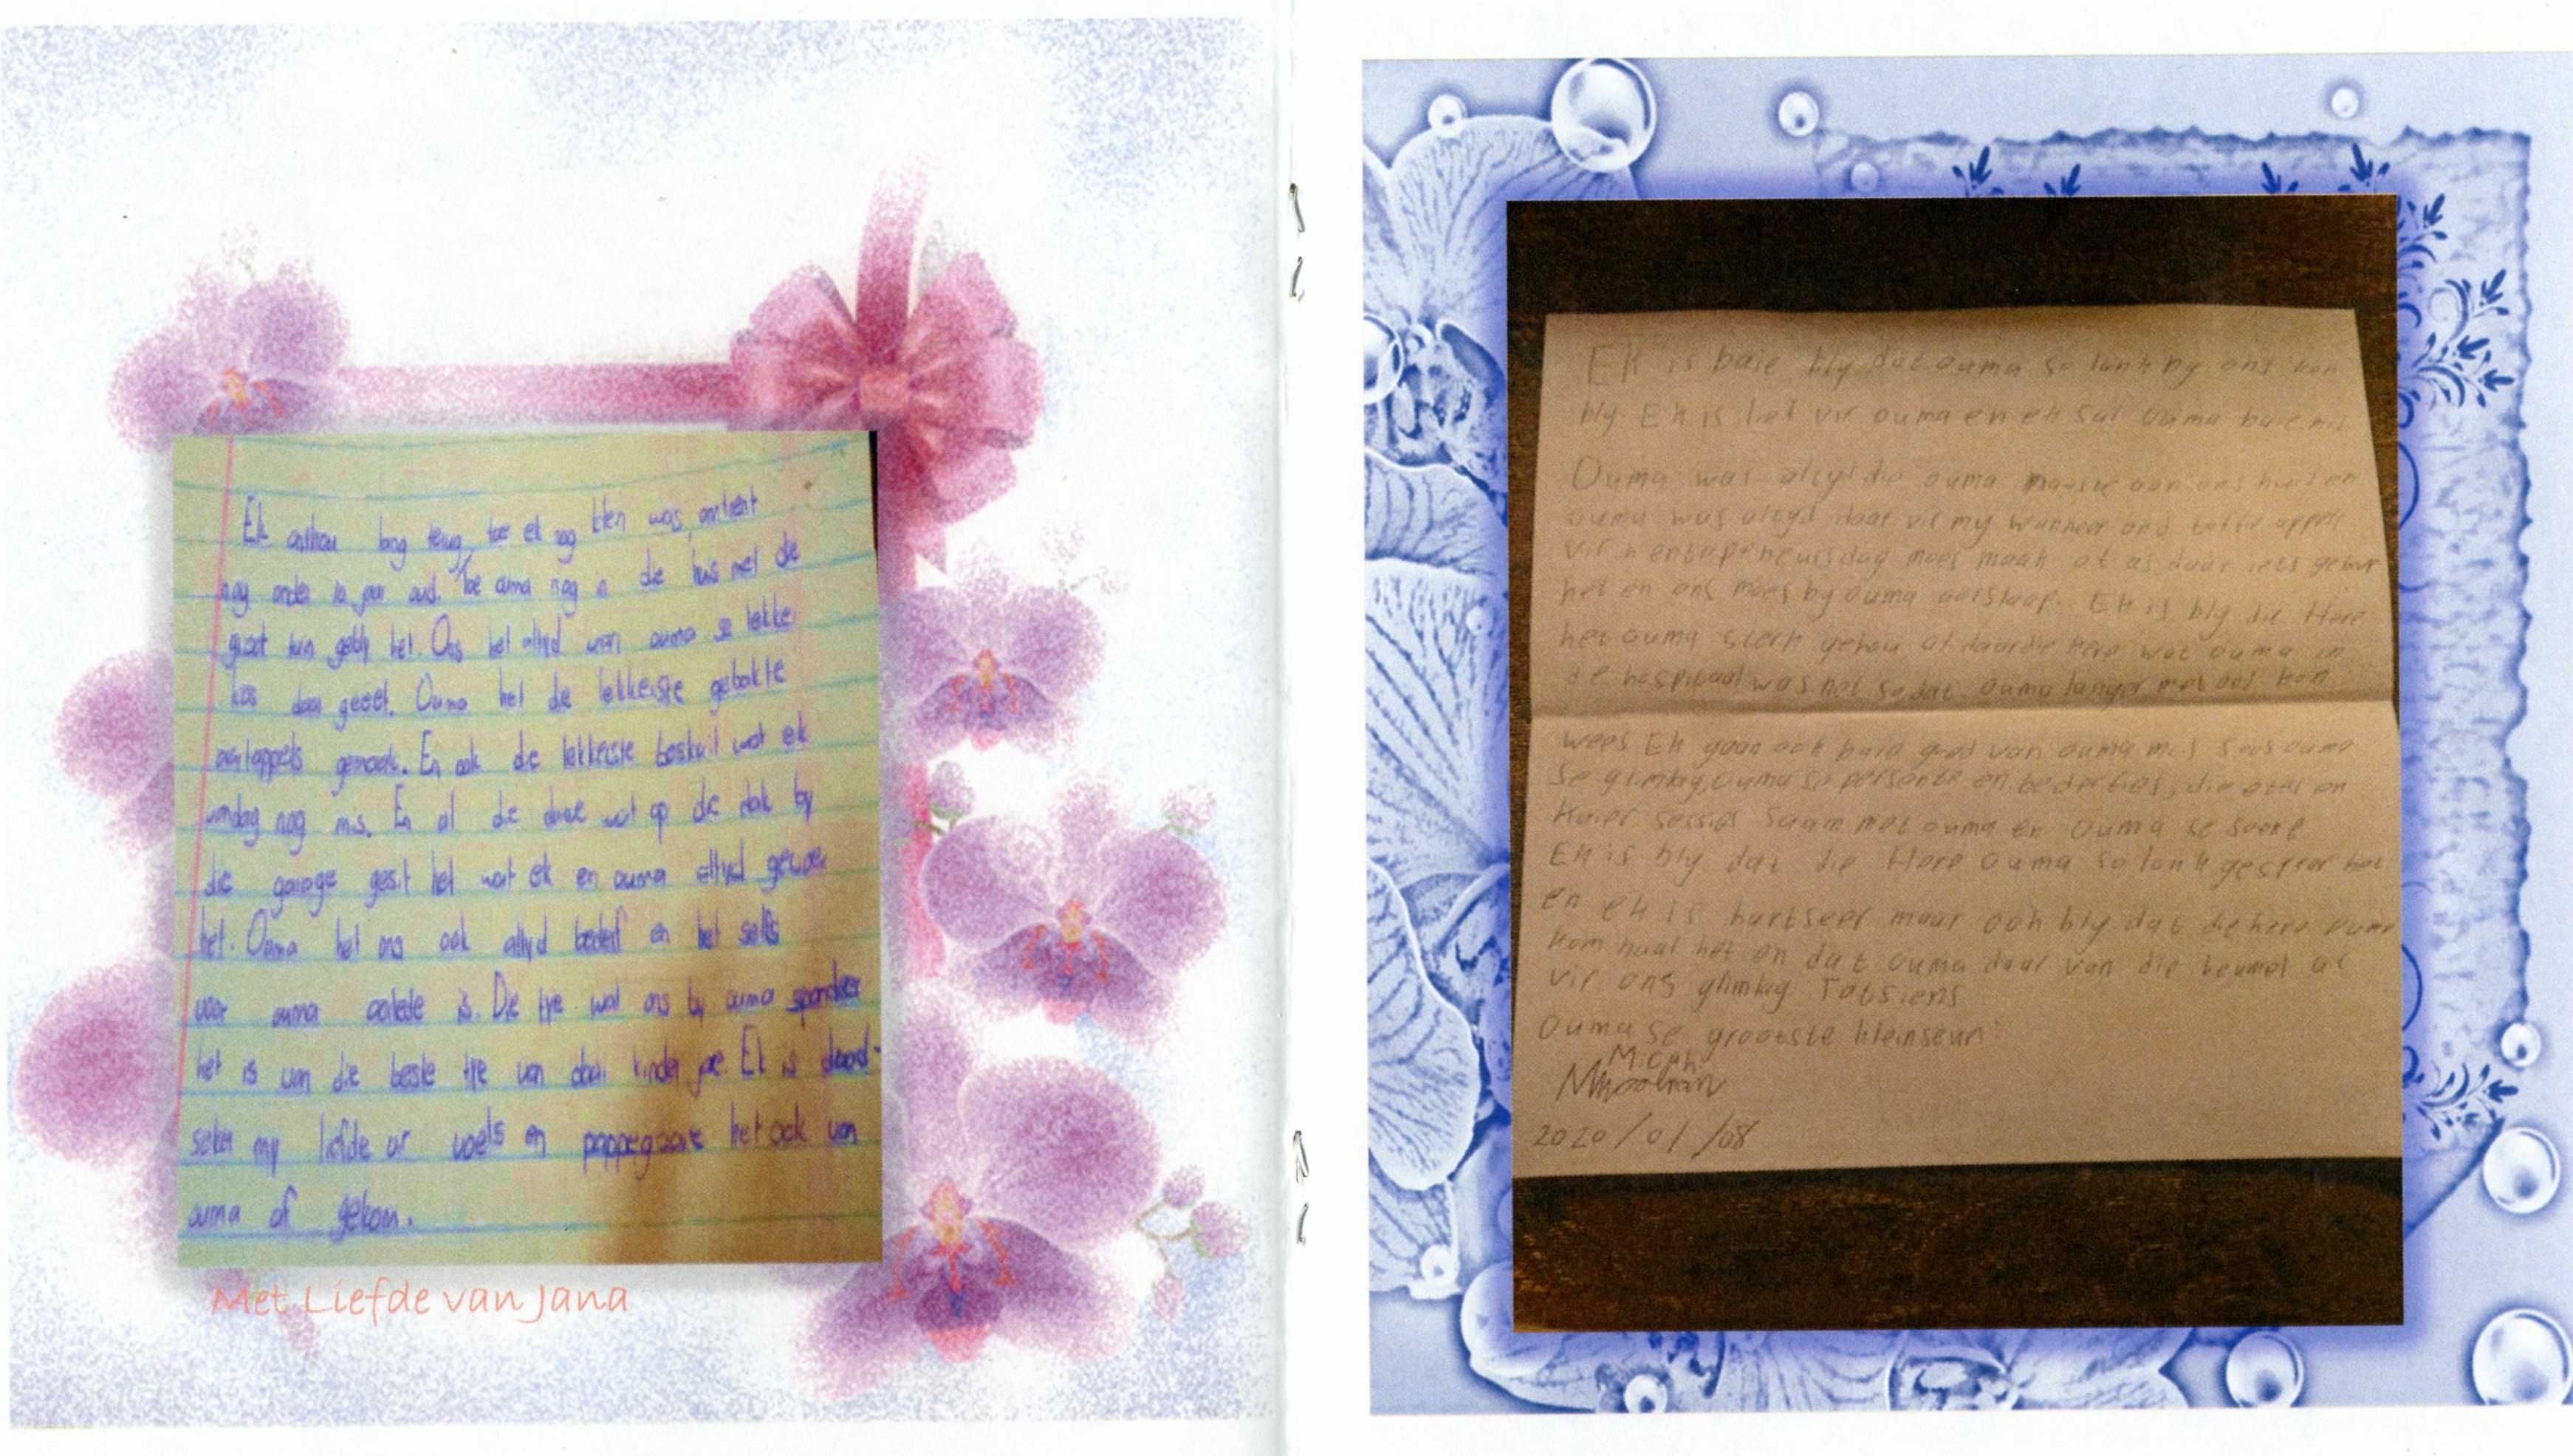 Ek onthou lang terug, toe ek nog klein was, omtrent
nog onder 10 jaar oud. Toe ouma nog in die huis met die
groot tuin gebly het. Ons het altyd van ouma se lekker
kos daar geëet. Ouma het die lekkerste gebakte
aartappels gemaak. En ook die lekkerste beskuit wat ek
vandag nog mis. En al die duiwe wat op die dak by
die garage gesit het wat ek en ouma altyd gevoer
het. Ouma het ons ook altyd bederf en het selfs
voor ouma is. Die tye wat ons by ouma spandeer
het is van die beste tye van daai kinder jare. Ek is dood-
seker my liefde vir voëls en pappegaaie het ook van
ouma af gekom.
Met Liefde van Jana
EK is baie bly dat ouma so lank by ons kon
bly. Ek is lief vir ouma en ek sal ouma baie mis
Ouma was altyd die ouma naaste aan ons huis en
ouma was altyd daar vir my wanneer ons toffie appels
vir n entrepeneursdag moes maak of as daar iets gebeur
het en ons moes by ouma oorslaap. Ek is bly die Here
het ouma sterk gehou al daardie kere wat ouma in
die hospitaal was net sodat ouma langer met ons kon
wees Ek gaan ook baie goed van ouma mis soos ouma
se glimlag, ouma se en bederfies, die etes en
Kuier sessies saam met ouma en Ouma se soort
Ek is bly dat die Here Ouma so lank gespaar het
en ek is hartseer maar ook bly dat die here ouma
kom haal het en dat ouma daar van die hemel af
vir ons glimlag Totsiens
Ouma se grootste kleinseun:
2020/01/08